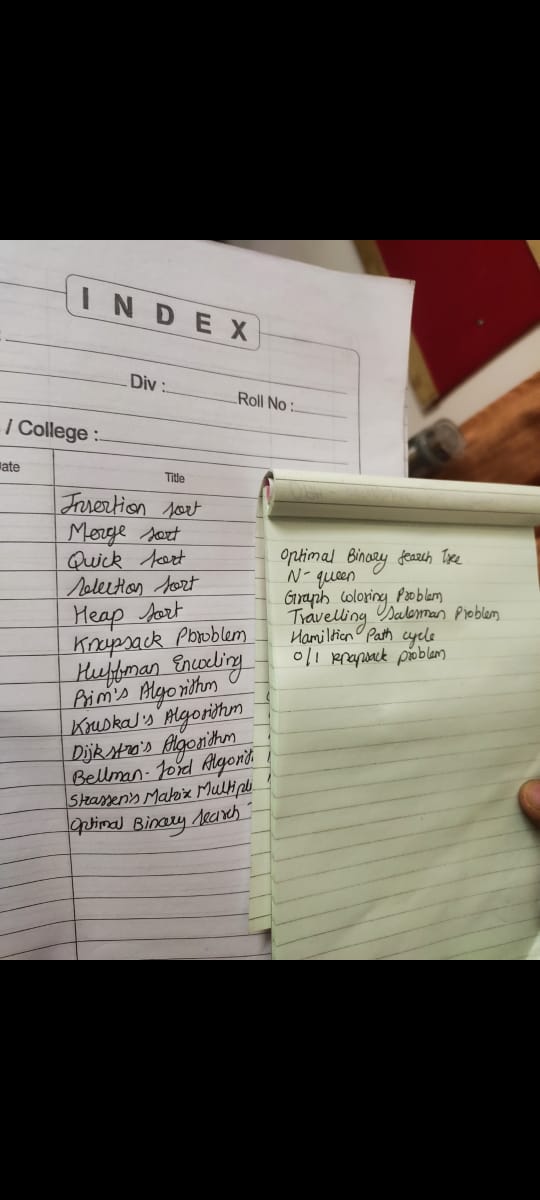 INDEX
Div :
Roll No :
/ College :
ate
Title
Insertion sort
Merge sort
Quick sort
Selection sort
Heap sort
Knapsack Pbroblem
Huffman Encoding
Prim's Algorithm
Kruskal's Algorithm
Dijkstra's Algorithm
Bellman-Ford Algorit
Strassen's Matrix Multipli
Optimal Binary Search
Optimal Binary Search Tree
N-queen
Graph Coloring Problem
Travelling Salesman Problem
Hamiltion Path cycle
0/1 knapsack problem